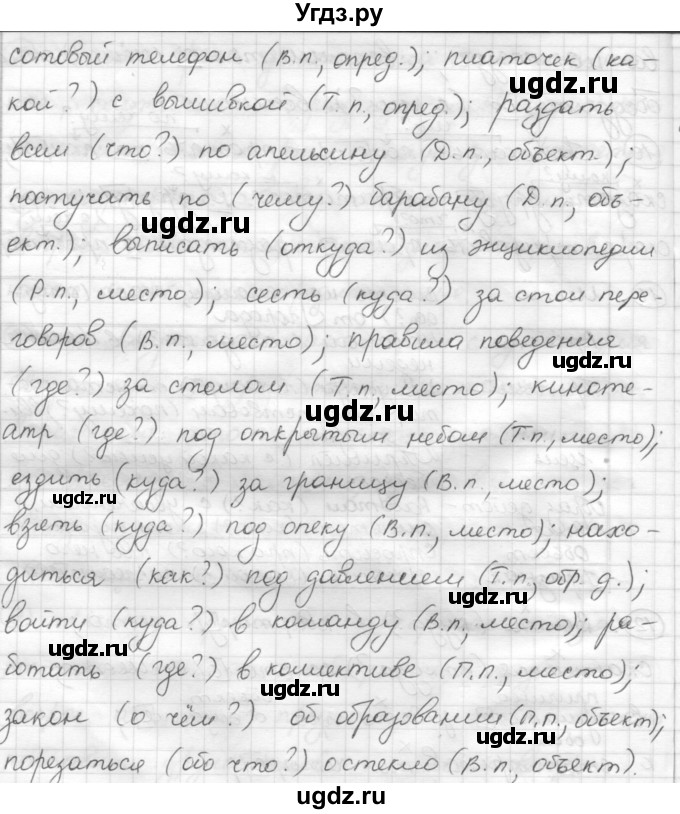 Угдз.ру
сотовый телефон (В.п., опред.); платочек (ка-
кой?) с вышивкой (Т.п, опред.); раздать
всем (что?) по апельсину (Д.п., объект.);
постучать по (чему?) барабану (Д.п., объ-
ект.); выписать (откуда?) из энциклопедии
(Р.п., место); сесть (куда?) за стол пере-
говоров (В.п., место); правила поведения
(где?) за столом (Т.п, место); киноте-
атр (где?) под открытым небом (Т.п., место);
ездить (куда?) за границу (В.п., место);
взять (куда?) под опеку (В.п., место); нахо-
диться (как?) под давлением (Т.п, обр.д.);
войти (куда?) в команду (В.п, место); ра-
ботать (где?) в коллективе (П.п., место);
закон (о чём?) об образовании (П.п., объект);
порезаться (обо что?) о стекло (В.п., объект).
ugdz.ru
ugdz.ru
ugdz.ru
ugdz.ru
ugdz.ru
ugdz.ru
ugdz.ru
ugdz.ru
ugdz.ru
ugdz.ru
ugdz.ru
ugdz.ru